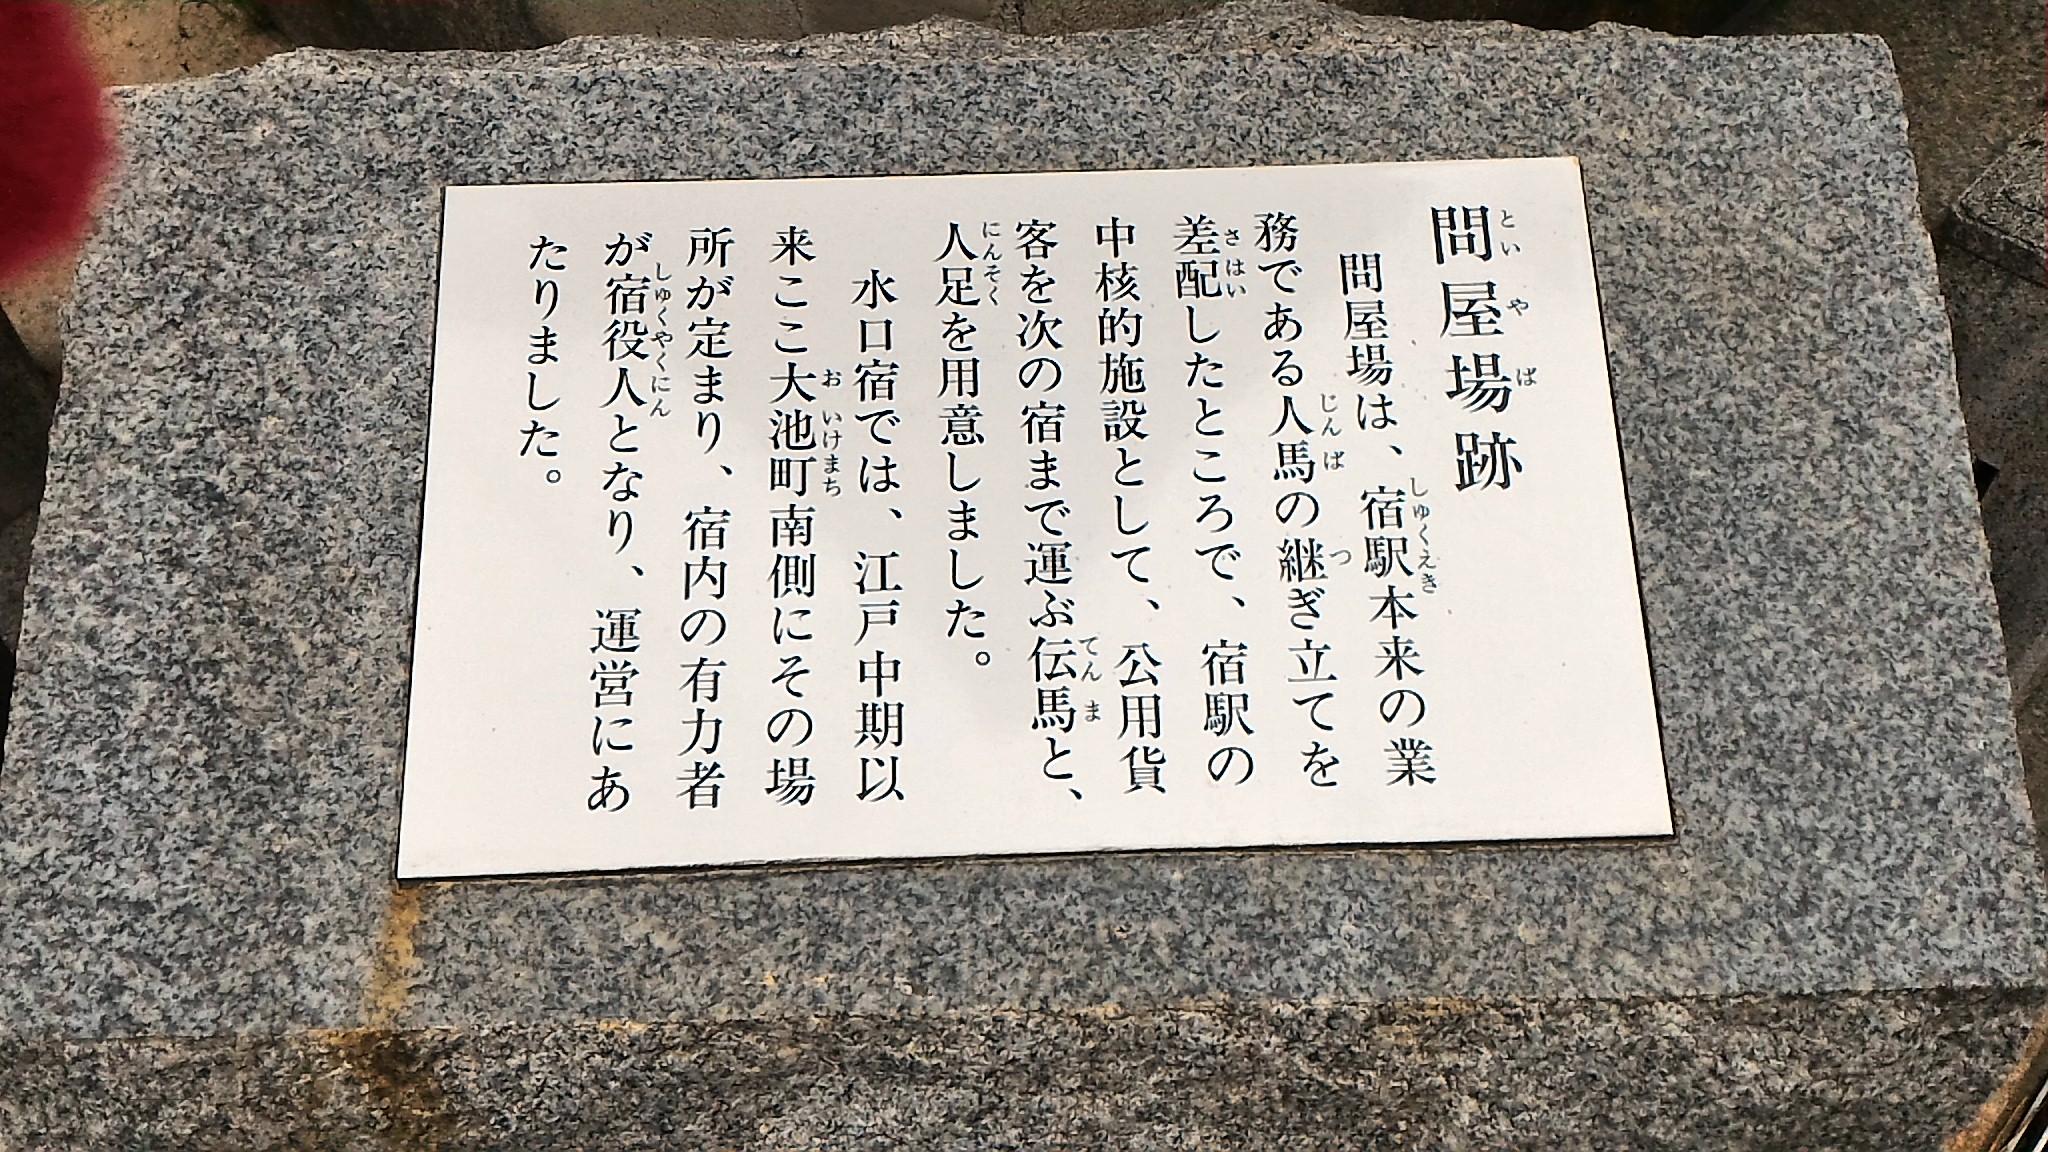 問屋場跡
問屋場は、宿駅本来の業
務である人馬の継ぎ立てを
差配したところで、宿駅の
中核的施設として、公用貨
客を次の宿まで運ぶ伝馬と、
人足を用意しました。
水口宿では、江戸中期以
来ここ大池町南側にその場
所が定まり、宿内の有力者
が宿役人となり、運営にあ
たりました。